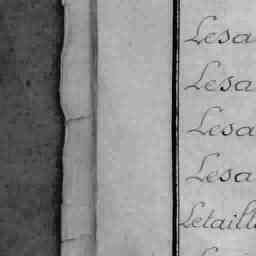 Lesa
Lesa
Lesa
Lesa
Letaill